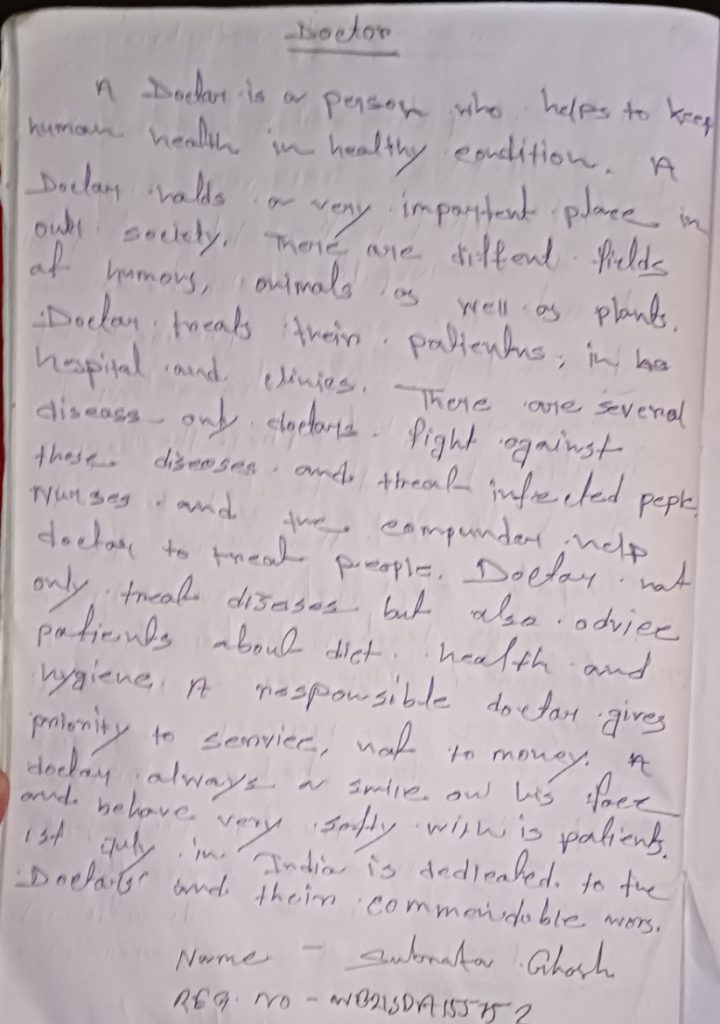 Doctor
A Doctar is a person who helps to keep
human health in healthy condition. A
Doctar halds a very important place in
our society. There are diffent fields
of humans, animals as well as plants.
Doctar treats their patientns, in ha
hospital and clinics. There are several
diseass only doctars fight against
these diseases and threat infected pepl
Nurses and the compunder help
doctar to treat people. Doctar nat
only treat diseases but also advice
patients about diet health and
hygiene. A responsible doctar gives
priority to service, nat to money. A
doctar always a smile on his face
and behave very softly with is patients.
1st July in India is dedicated to the
Doctars and their commendable wors.
Name - Subrata Ghosh
REG. NO -